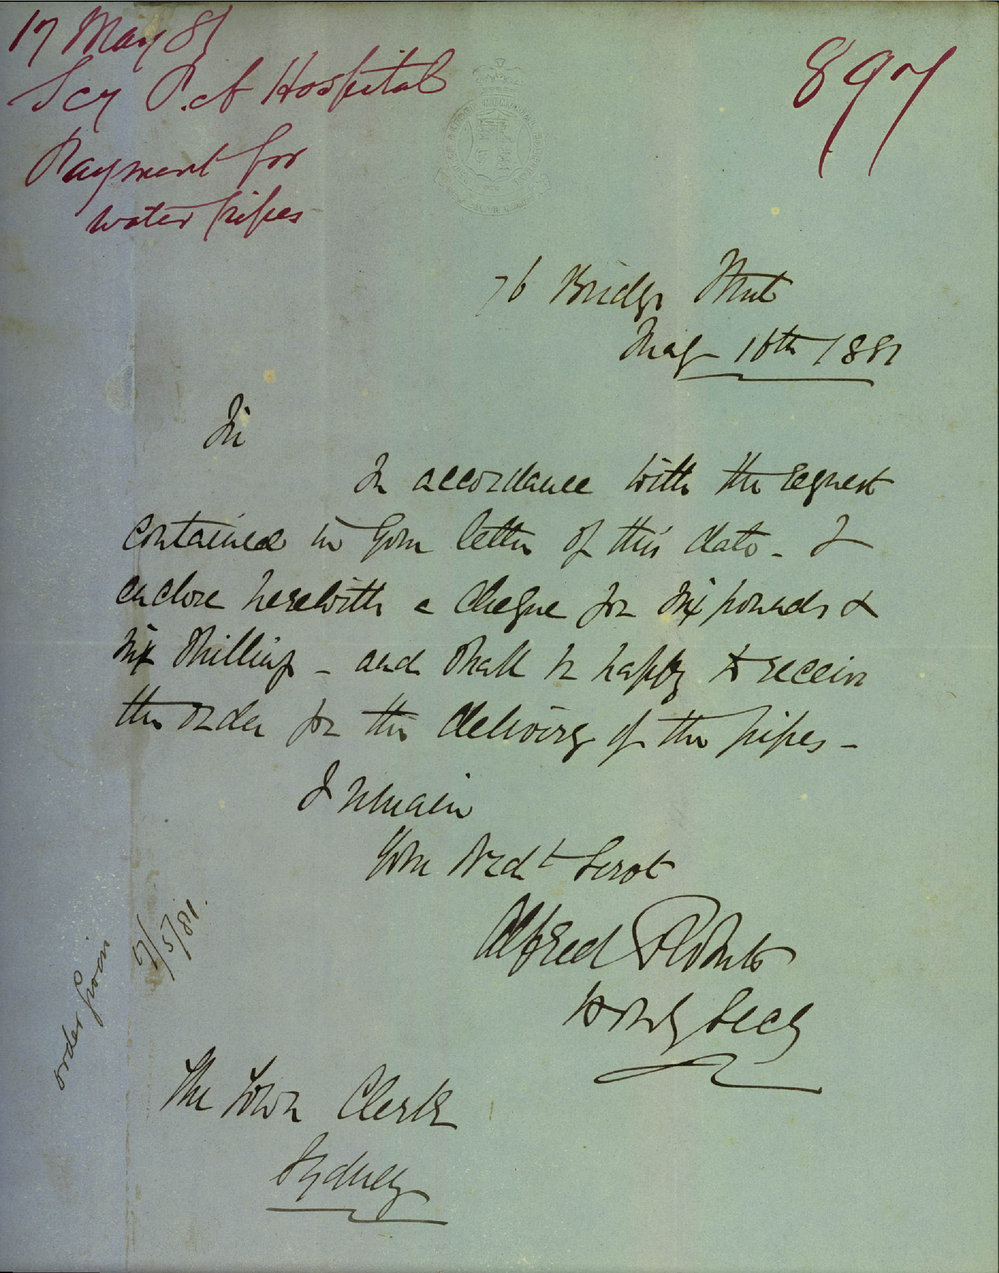 17 May 81
Secy P. of Hospital
Payment for
water pipes
897
76 Bridge Street
May 16th 1881
Sir
In accordance with the request
contained in your letter of this date - I
enclose herewith a cheque for six pounds &
six shillings - and shall be happy to receive
the order for the delivery of the pipes -
I remain
Your Obdt Servt
Alfred Roberts
Hony Secy
order given
17/5/81.
The Town Clerk
Sydney